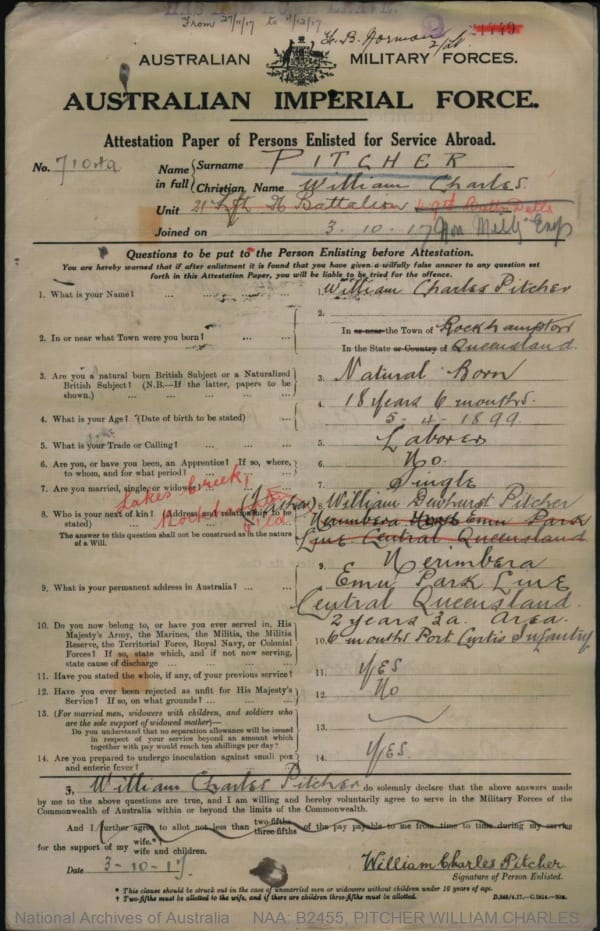 From 27/11/17 to 11/12/17
AUSTRALIAN MILITARY FORCES.
AUSTRALIAN IMPERIAL FORCE.
Attestation Paper of Persons Enlisted for Service Abroad.
No. Name in full { Surname PITCHER
Christian Name William Charles
Unit 26 Battalion
Joined on 3.10.17
Questions to be put to the Person Enlisting before Attestation.
You are hereby warned that if after enlistment it is found that you have given a wilfully false answer to any question set
forth in this Attestation Paper, you will be liable to be tried for the offence.
1. What is your Name? ... ... ... ... 1. William Charles Pitcher
2. In or near what Town were you born? ... ... 2. In or near the Town of Rockhampton
In the State or Country of Queensland.
3. Are you a natural born British Subject or a Naturalized
British Subject? (N.B.—If the latter, papers to be
shown.) ... ... ... ... 3. Natural Born
4. What is your Age? (Date of birth to be stated) ... 4. 18 years 6 months.
5-4-1899
5. What is your Trade or Calling? ... ... ... 5. Laborer
6. Are you, or have you been, an Apprentice? If so, where,
to whom, and for what period? ... ... 6. No.
7. Are you married, single, or widower? ... 7. Single
Lakes Creek
8. Who is your next of kin? (Address and relationship to be
stated) (Father) 8. William Dewhurst Pitcher
Nerimbera Emu Park
Line Central Queensland
The answer to this question shall not be construed as in the nature
of a Will.
9. What is your permanent address in Australia? ... 9. Nerimbera
Emu Park Line
Central Queensland.
10. Do you now belong to, or have you ever served in, His
Majesty's Army, the Marines, the Militia, the Militia
Reserve, the Territorial Force, Royal Navy, or Colonial
Forces? If so, state which, and if not now serving,
state cause of discharge ... ... ... 10. 2 years 3a. Area.
6 months Port Curtis Infantry
11. Have you stated the whole, if any, of your previous service? 11. YES
12. Have you ever been rejected as unfit for His Majesty's
Service? If so, on what grounds? ... ... 12. No
13. (For married men, widowers with children, and soldiers who
are the sole support of widowed mother)—
Do you understand that no separation allowance will be issued
in respect of your service beyond an amount which
together with pay would reach ten shillings per day? 13.
14. Are you prepared to undergo inoculation against small pox
and enteric fever? ... ... ... 14. YES.
I, William Charles Pitcher do solemnly declare that the above answers made
by me to the above questions are true, and I am willing and hereby voluntarily agree to serve in the Military Forces of the
Commonwealth of Australia within or beyond the limits of the Commonwealth.
And I further agree to allot not less than two-fifths three-fifths of the pay payable to me from time to time during my service
for the support of my wife.* wife and children.
Date 3-10-17 William Charles Pitcher
Signature of Person Enlisted.
* This clause should be struck out in the case of unmarried men or widowers without children under 16 years of age.
† Two-fifths must be allotted to the wife, and if there are children three-fifths must be allotted.
National Archives of Australia NAA: B2455, PITCHER WILLIAM CHARLES